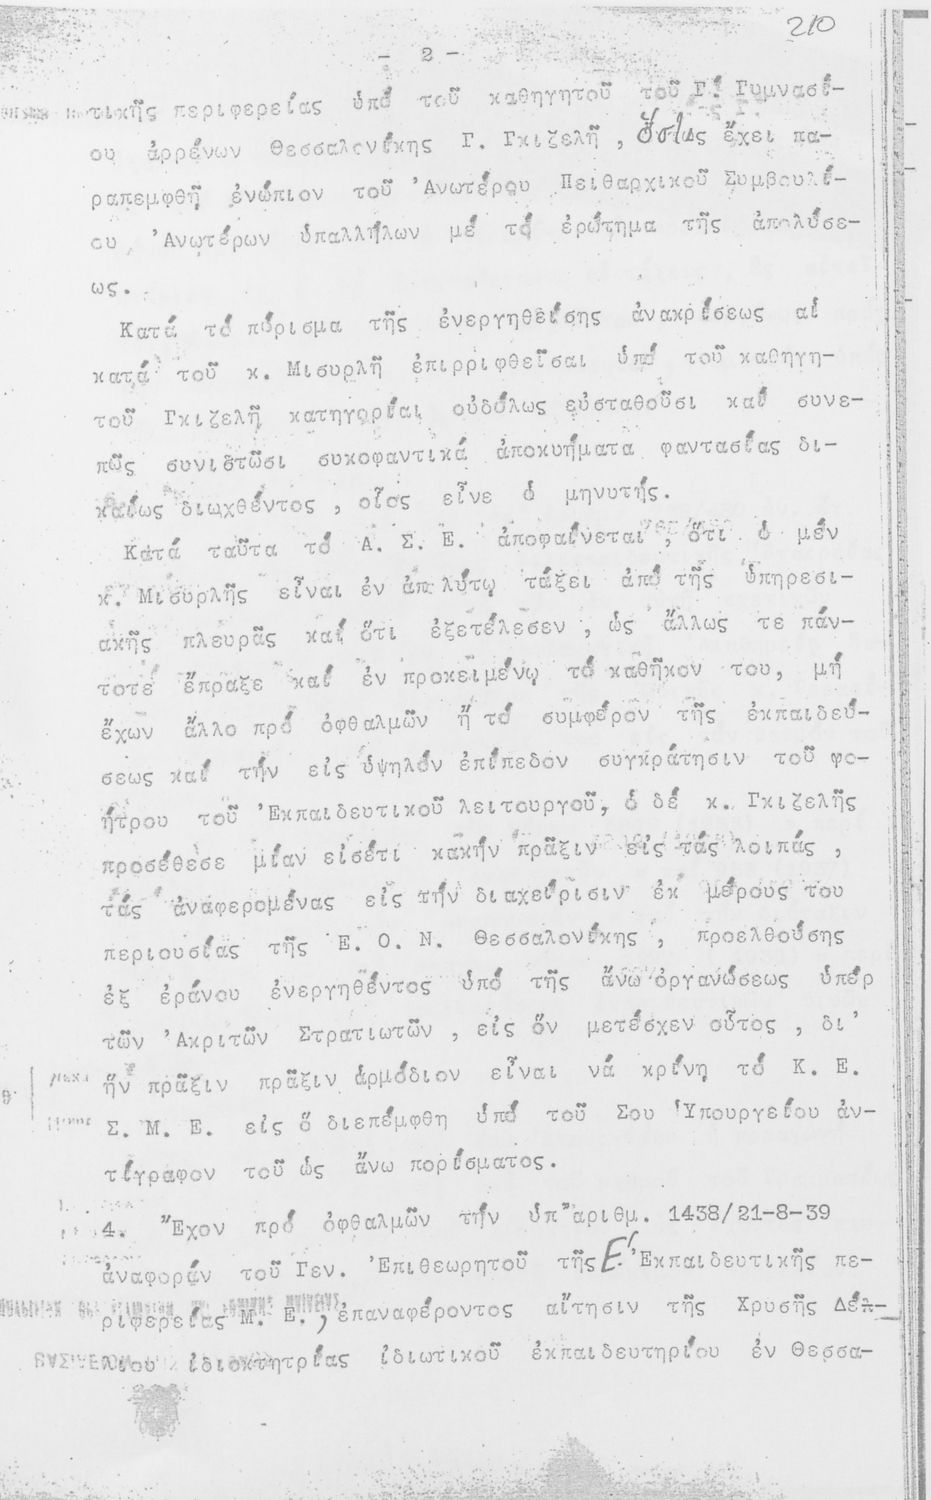 210
- 2 -
τικῆς περιφερείας ὑπό τοῦ καθηγητοῦ τοῦ Γ΄. Γυμνασί-
ου ἀρρένων Θεσσαλονίκης Γ. Γκιζελῆ , ὅστις ἔχει πα-
ραπεμφθῆ ἐνώπιον τοῦ Ἀνωτέρου Πειθαρχικοῦ Συμβουλί-
ου Ἀνωτέρων ὑπαλλήλων μέ τό ἐρώτημα τῆς ἀπολύσε-
ως.
Κατά τό πόρισμα τῆς ἐνεργηθείσης ἀνακρίσεως αἱ
κατά τοῦ κ. Μισυρλῆ ἐπιρριφθεῖσαι ὑπό τοῦ καθηγη-
τοῦ Γκιζελῆ κατηγορίαι οὐδόλως εὐσταθοῦσι καί συνε-
πῶς συνιστῶσι συκοφαντικά ἀποκυήματα φαντασίας δι-
καίως διωχθέντος , οἷος εἶνε ὁ μηνυτής.
Κατά ταῦτα τό Α. Σ. Ε. ἀποφαίνεται , ὅτι ὁ μέν
κ. Μισυρλῆς εἶναι ἐν ἀπολύτῳ τάξει ἀπό τῆς ὑπηρεσι-
ακῆς πλευρᾶς καί ὅτι ἐξετέλεσεν , ὡς ἄλλως τε πάν-
τοτε ἔπραξε καί ἐν προκειμένῳ τό καθῆκον του, μή
ἔχων ἄλλο πρό ὀφθαλμῶν ἤ τό συμφέρον τῆς ἐκπαιδεύ-
σεως καί τήν εἰς ὑψηλόν ἐπίπεδον συγκράτησιν τοῦ γο-
ήτρου τοῦ Ἐκπαιδευτικοῦ λειτουργοῦ, ὁ δέ κ. Γκιζελῆς
προσέθεσε μίαν εἰσέτι κακήν πρᾶξιν εἰς τάς λοιπάς ,
τάς ἀναφερομένας εἰς τήν διαχείρισιν ἐκ μέρους του
περιουσίας τῆς Ε. Ο. Ν. Θεσσαλονίκης , προελθούσης
ἐξ ἐράνου ἐνεργηθέντος ὑπό τῆς ἄνω ὀργανώσεως ὑπέρ
τῶν Ἀκριτῶν Στρατιωτῶν , εἰς ὅν μετέσχεν οὗτος , δι'
ἥν πρᾶξιν πρᾶξιν ἁρμόδιον εἶναι νά κρίνῃ τό Κ. Ε.
Σ. Μ. Ε. εἰς ὅ διεπέμφθη ὑπό τοῦ Σου Ὑπουργείου ἀν-
τίγραφον τοῦ ὡς ἄνω πορίσματος.
4. Ἔχον πρό ὀφθαλμῶν τήν ὑπ' ἀριθμ. 1438/21-8-39
ἀναφοράν τοῦ Γεν. Ἐπιθεωρητοῦ τῆς Ε΄. Ἐκπαιδευτικῆς πε-
ριφερείας Μ. Ε., ἐπαναφέροντος αἴτησιν τῆς Χρυσῆς Δέλ-
λιου ἰδιοκτητρίας ἰδιωτικοῦ ἐκπαιδευτηρίου ἐν Θεσσα-